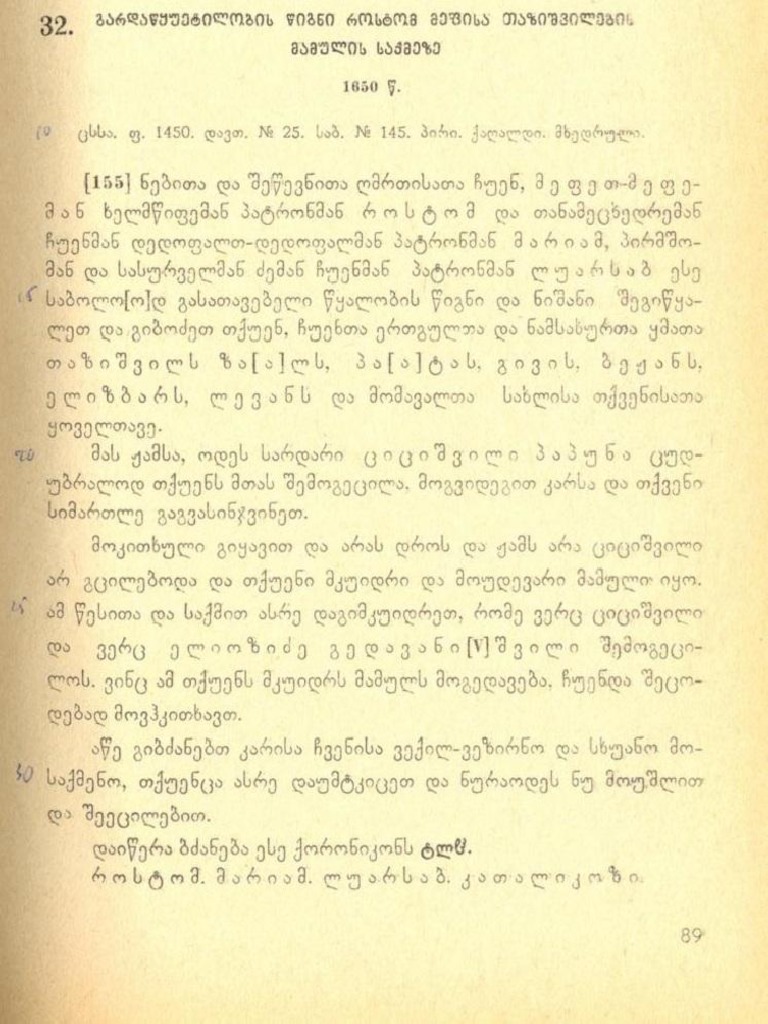 32. გარდაწყუეტილობის წიგნი როსტომ მეფისა თაზიშვილების
მამულის საქმეზე
1650 წ.
10 ცსსა. ფ. 1450. დავთ. № 25. საბ. № 145. პირი. ქაღალდი. მხედრული.
[155] ნებითა და შეწევნითა ღმრთისათა ჩუენ, მეფეთ-მეფე-
მან ხელმწიფემან პატრონმან როსტომ და თანამეცხედრემან
ჩუენმან დედოფალთ-დედოფალმან პატრონმან მარიამ, პირმშო-
მან და სასურველმან ძემან ჩუენმან პატრონმან ლუარსაბ ესე
15 საბოლო[ო]დ გასათავებელი წყალობის წიგნი და ნიშანი შეგიწყა-
ლეთ და გიბოძეთ თქუენ, ჩუენთა ერთგულთა და ნამსახურთა ყმათა
თაზიშვილს ზა[ა]ლს, პა[ა]ტას, გივის, ბეჟანს,
ელიზბარს, ლევანს და მომავალთა სახლისა თქვენისათა
ყოველთავე.
20 მას ჟამსა, ოდეს სარდარი ციციშვილი პაპუნა ცუდ-
უბრალოდ თქუენს მთას შემოგეცილა, მოგვიდეგით კარსა და თქვენი
სიმართლე გაგვასინჯვინეთ.
მოკითხული გიყავით და არას დროს და ჟამს არა ციციშვილი
არ გცილებოდა და თქუენი მკუიდრი და მოუდევარი მამული იყო.
25 ამ წესითა და საქმით ასრე დაგიმკუიდრეთ, რომე ვერც ციციშვილი
და ვერც ელიოზიძე გედავანი[V]შვილი შემოგეცი-
ლოს. ვინც ამ თქუენს მკუიდრს მამულს მოგედავება, ჩუენდა შეცო-
დებად მოვჰკითხავთ.
აწე გიბძანებთ კარისა ჩვენისა ვექილ-ვეზირნო და სხუანო მო-
30 საქმენო, თქუენცა ასრე დაუმტკიცეთ და ნურაოდეს ნუ მოუშლით
და შეეცილებით.
დაიწერა ბძანება ესე ქორონიკონს ტლჱ.
როსტომ. მარიამ. ლუარსაბ. კათალიკოზი.
89